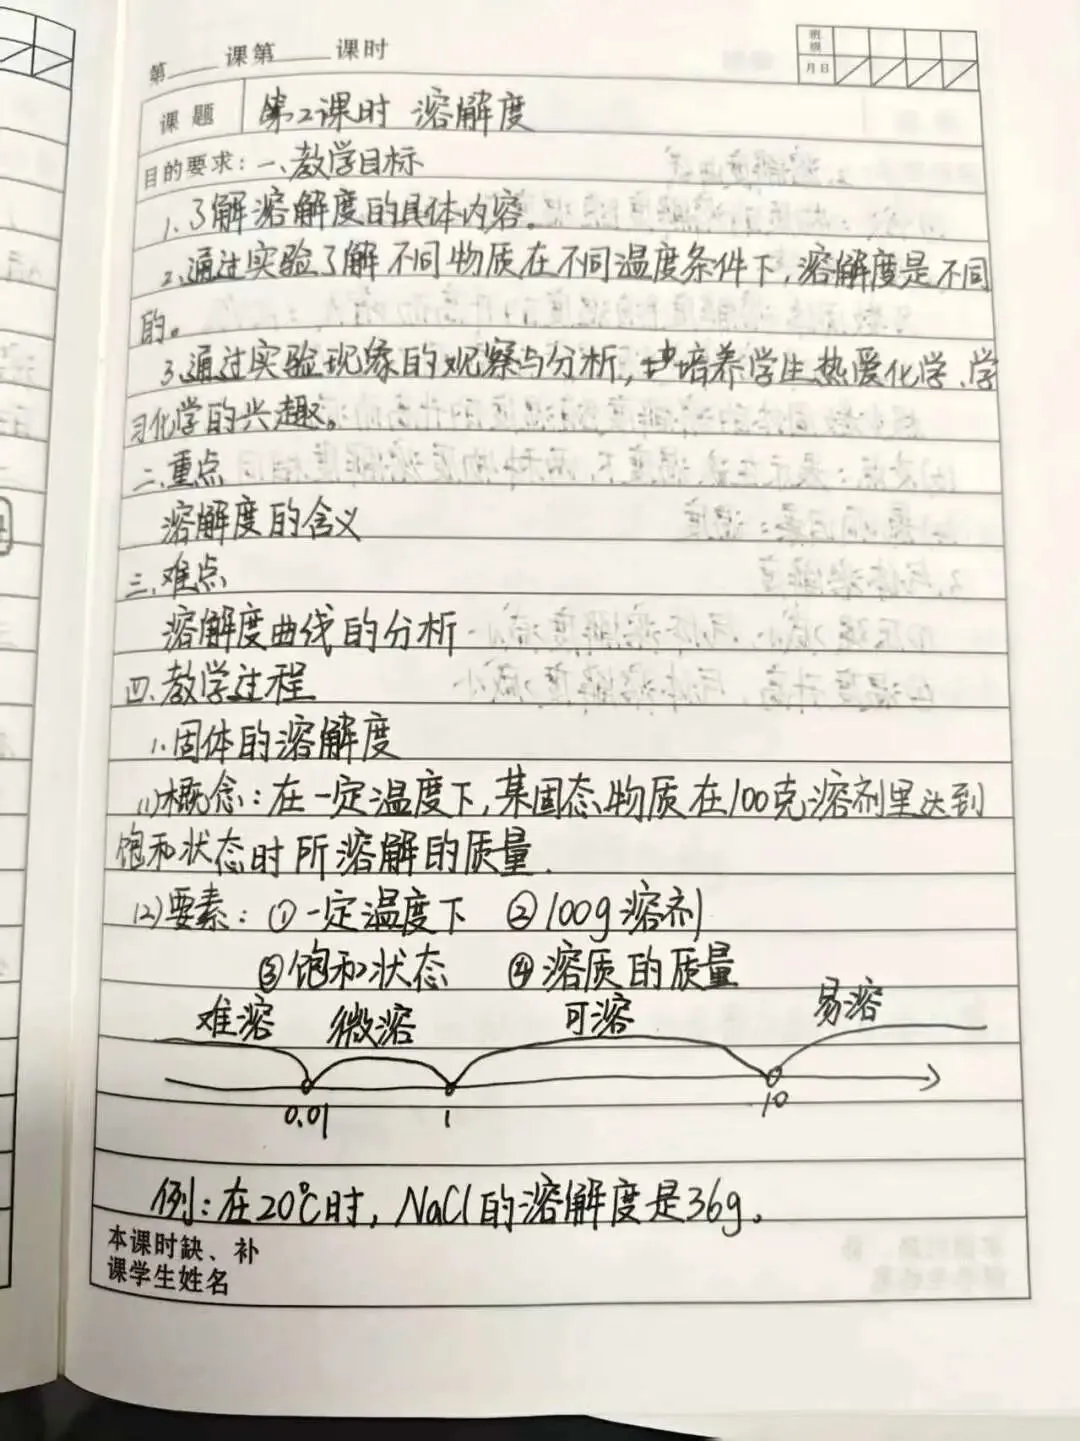 第____课第____课时
班级
月日
课题 第2课时 溶解度
目的要求：一、教学目标
1.了解溶解度的具体内容.
2.通过实验了解不同物质在不同温度条件下,溶解度是不同
的。
3.通过实验现象的观察与分析,培养学生热爱化学、学
习化学的兴趣。
二.重点
溶解度的含义
三.难点
溶解度曲线的分析
四.教学过程
1.固体的溶解度
(1)概念：在一定温度下,某固态物质在100克溶剂里达到
饱和状态时所溶解的质量.
(2)要素：①一定温度下 ②100g溶剂
③饱和状态 ④溶质的质量
难溶 微溶 可溶 易溶
0.01 1 10
例：在20℃时,NaCl的溶解度是36g。
本课时缺、补
课学生姓名